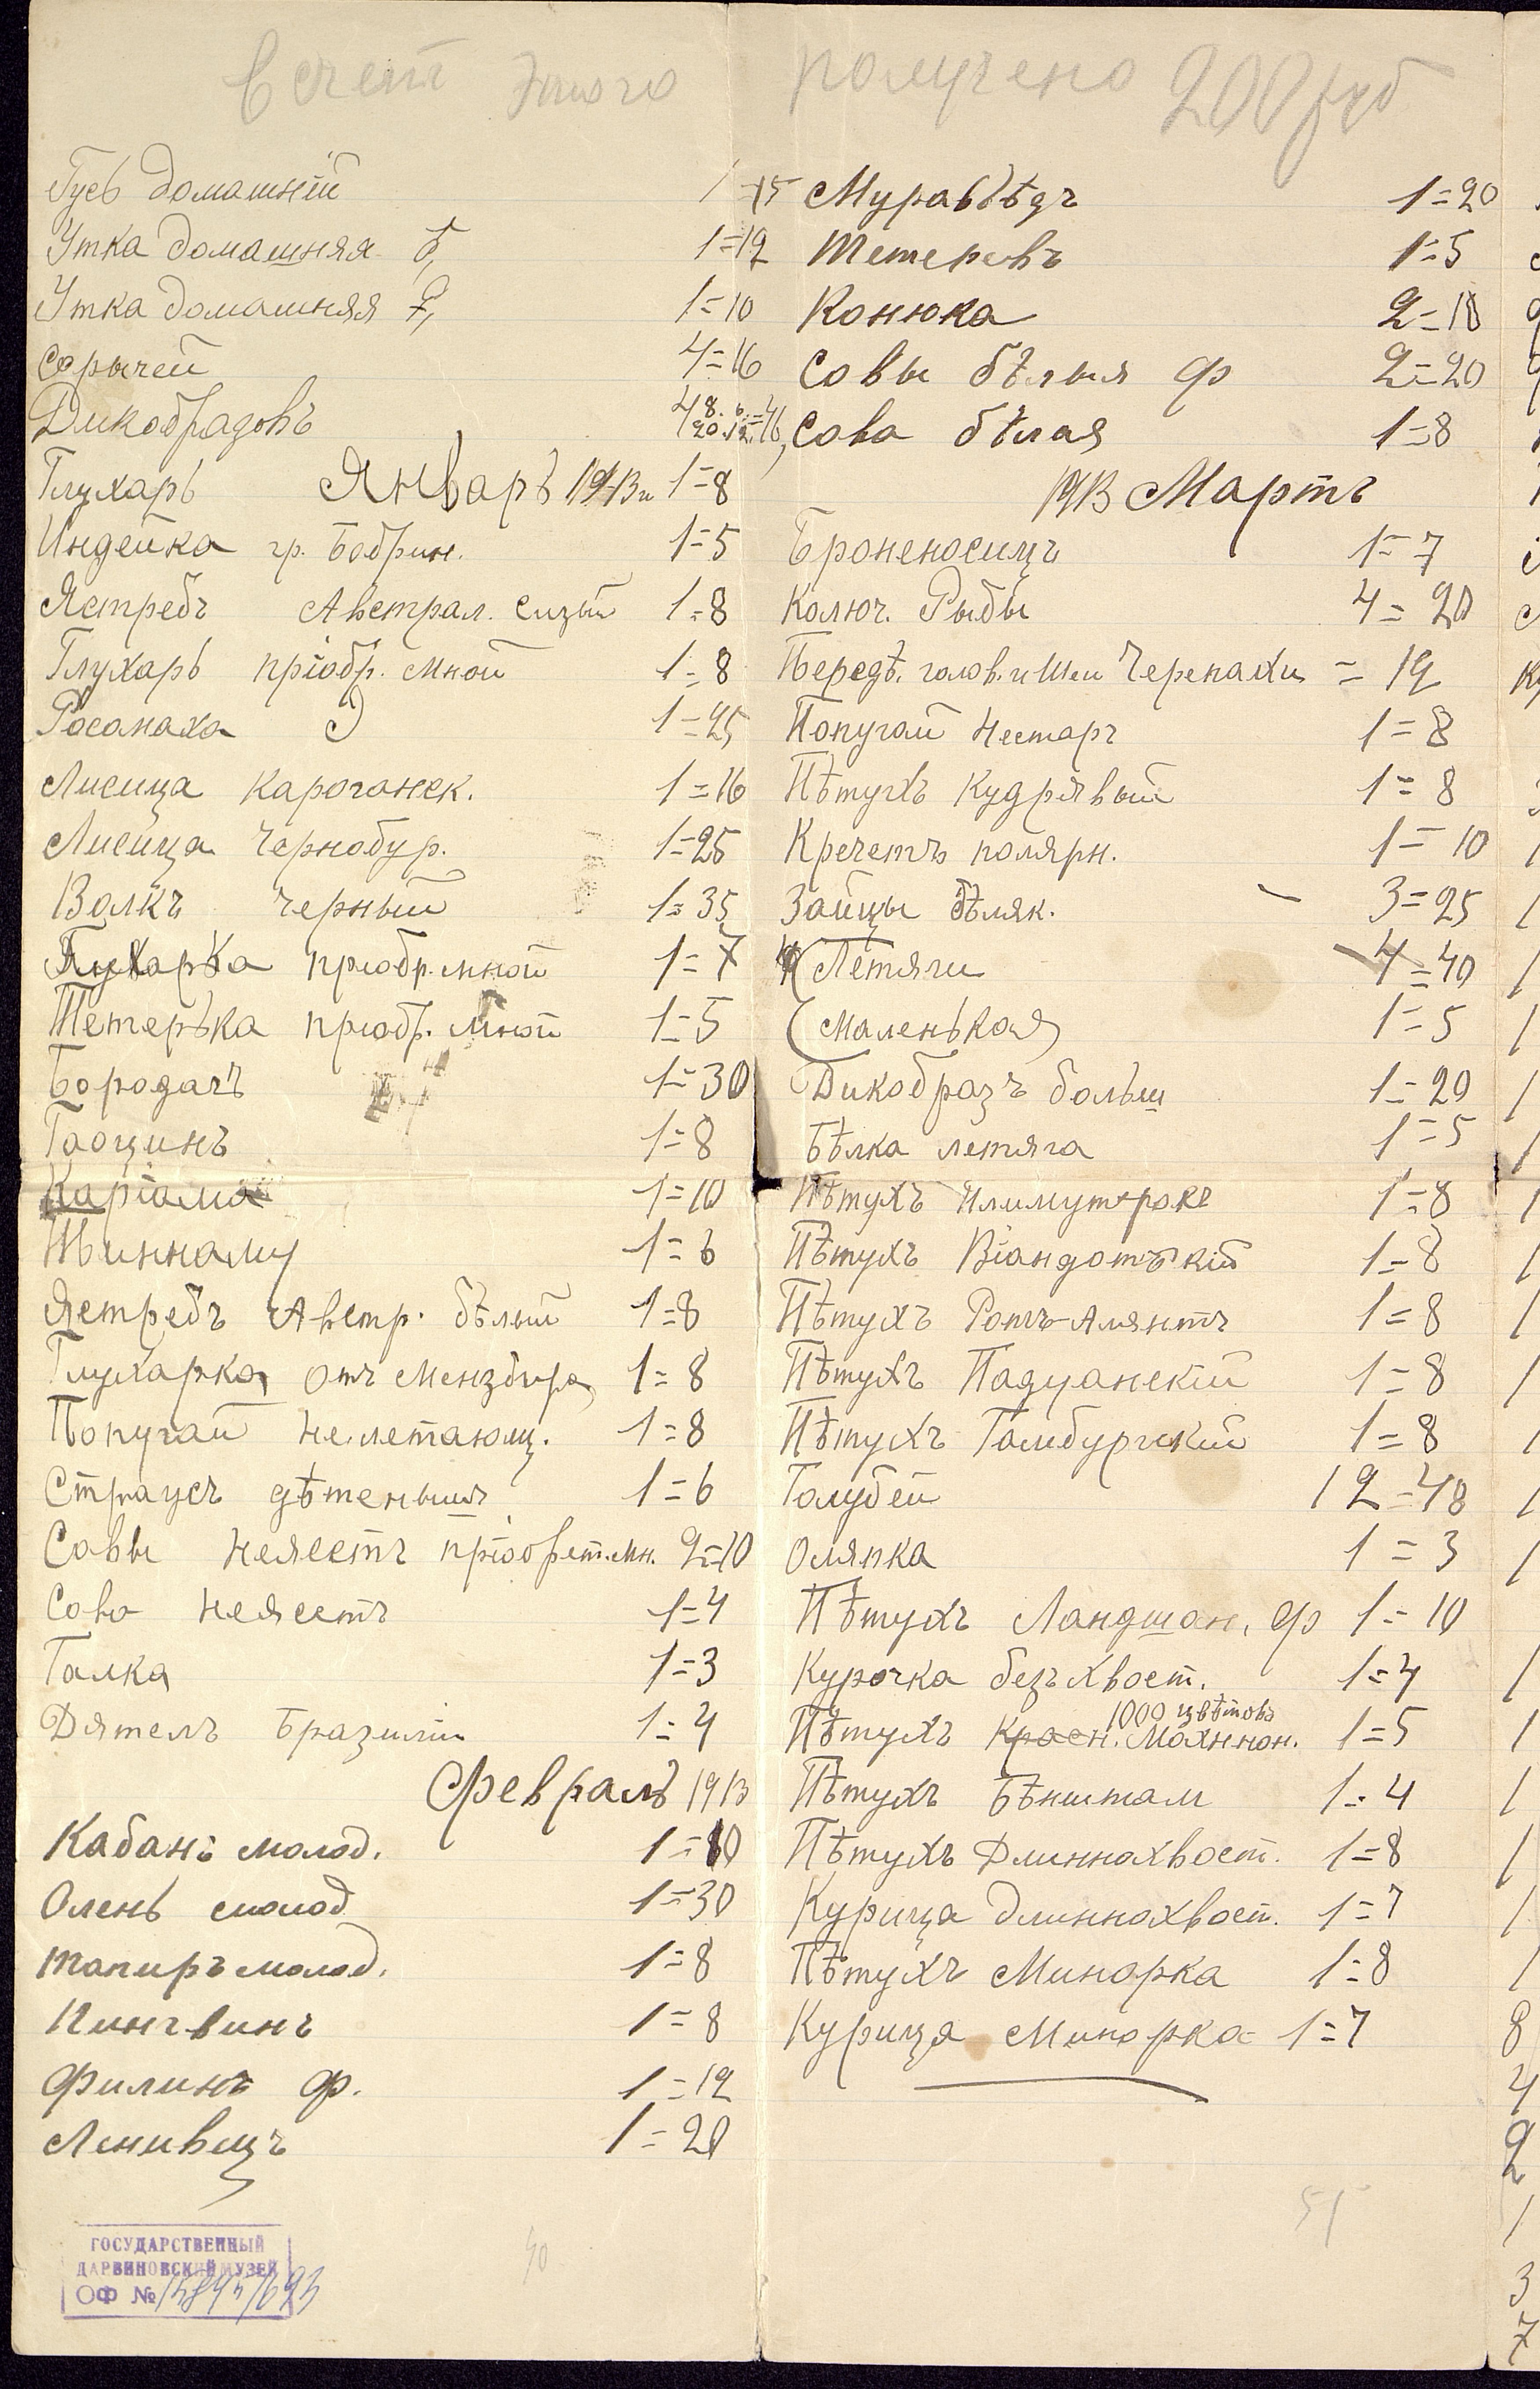 в счет этого получено 200 руб
Гусь домашній 1 = 15
Утка домашняя ♂, 1=12
Утка домашняя ♀, 1=10
Сарычей 4=16
Дикобразовъ
Глухарь 1=8
Январь 1913 г
Индейка гр. Бобрин. 1=5
Ястребъ Австрал. сизый 1=8
Глухарь пріобр. мной 1=8
Росомаха 1=25
Лисица Караганск. 1=16
Лисица Чернобур. 1=25
Волкъ черный 1=35
Глухарка пріобр. мной 1=7
Тетерька пріобр. мной 1=5
Бородачъ 1=30
Гоацинъ 1=8
Каріама 1=10
Тиннаму 1=6
Ястребъ Австр. бѣлый 1=8
Глухарка отъ Мензбира 1=8
Попугай нелетающ. 1=8
Страусъ дѣтенышъ 1=6
Совы Неясеть пріобрет. мн. 2=10
Сова Неясеть 1=4
Галка 1=3
Дятелъ Бразиліи 1=4
Февраль 1913
Кабанъ молод. 1=10
Олень молод 1=30
Тапиръ молод. 1=8
Пингвинъ 1=8
Филинъ ф. 1=12
Ленивецъ 1=20
ГОСУДАРСТВЕННЫЙ
ДАРВИНОВСКИЙ МУЗЕЙ
ОФ №
40
Муравѣдъ 1=20
Тетеревъ 1=5
Конюка 2=18
Совы бѣлыя ф 2=20
Сова бѣлая 1=8
1913 Мартъ
Броненосицъ 1=7
Колюч. Рыбы 4=20
Передѣ. голов. и шеи Черепахи = 12
Попугай Нестаръ 1=8
Пѣтухъ Кудрявый 1=8
Кречетъ полярн. 1=10
Зайцы бѣляк. 3=25
Летяги 4=40
(маленькая) 1=5
Дикобразъ больш 1=20
Бѣлка летяга 1=5
Пѣтухъ Плимутрокъ 1=8
Пѣтухъ Віандотскій 1=8
Пѣтухъ Ротъ-Алянтъ 1=8
Пѣтухъ Падуанскій 1=8
Пѣтухъ Гамбургскій 1=8
Голубей 12=48
Оляпка 1=3
Пѣтухъ Ландшан. ф 1=10
Курочка безхвост. 1=4
1000 цвѣтовъ
Пѣтухъ Красн. Махннон. 1=5
Пѣтухъ Бѣнштам 1=4
Пѣтухъ Длиннохвост. 1=8
Курица длиннохвост. 1=7
Пѣтухъ Минорка 1=8
Курица Минорка 1=7
51